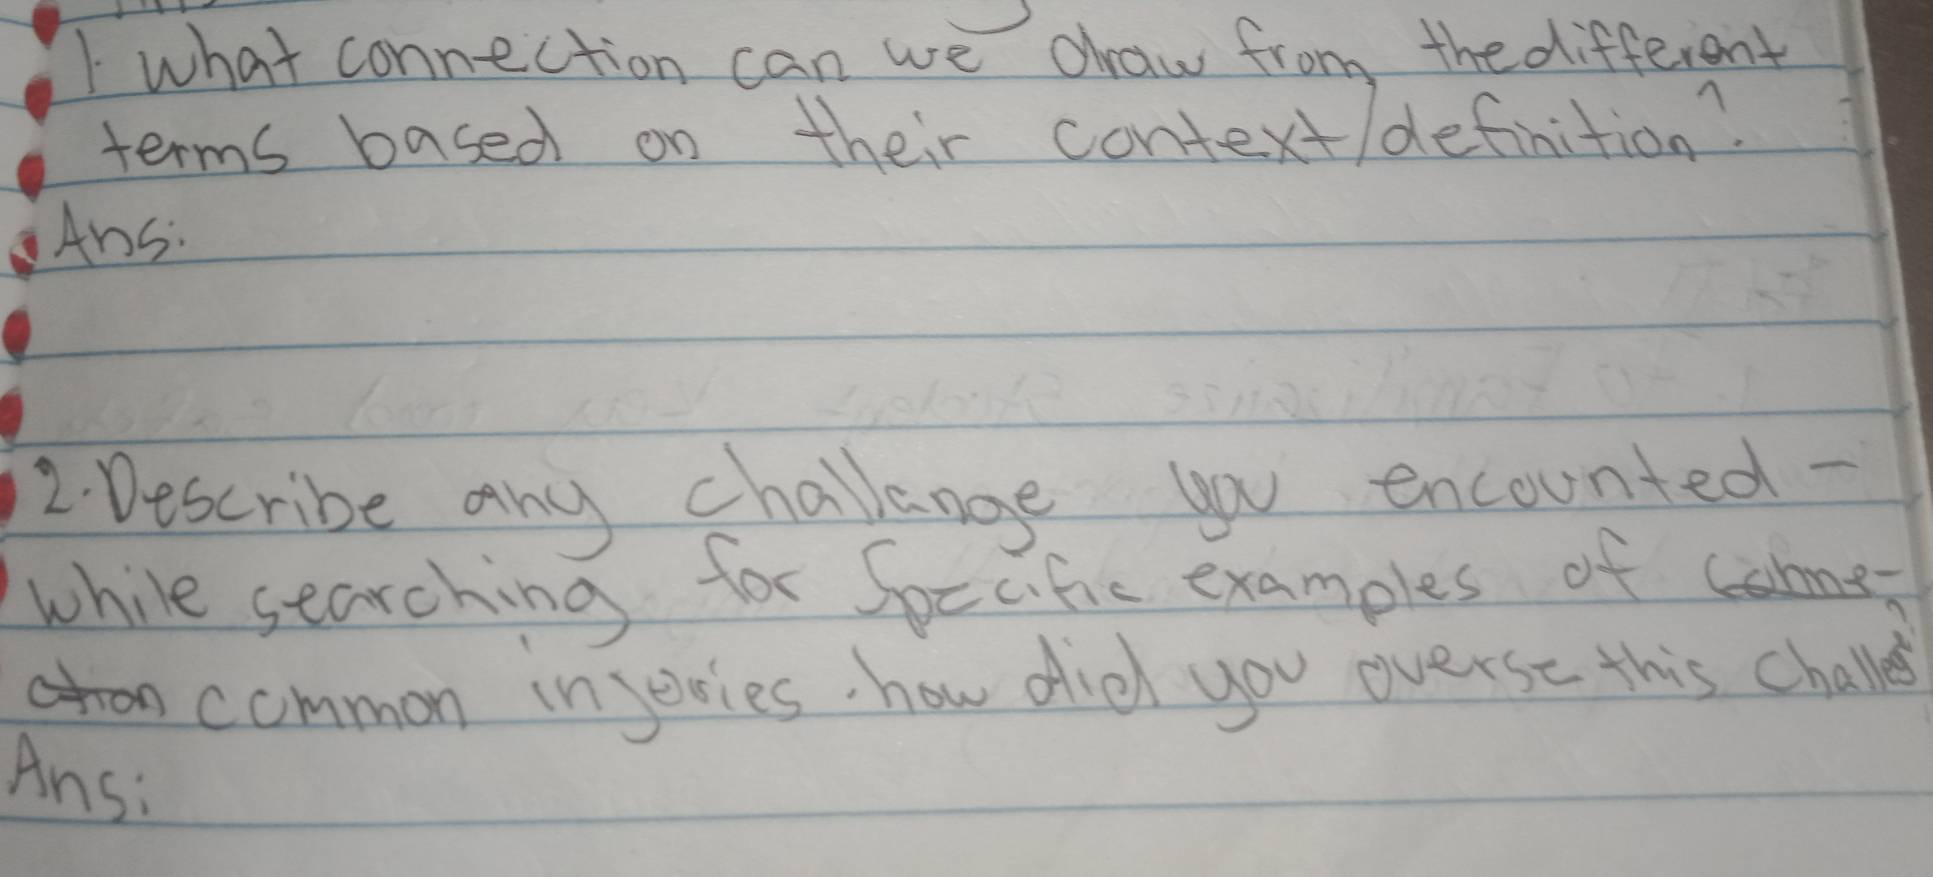 1. What connection can we draw from the different
terms based on their context/definition?
Ans:
2. Describe any challange you encounted -
while searching for Specific examples of
common injouries. how did you overse this
Ans: